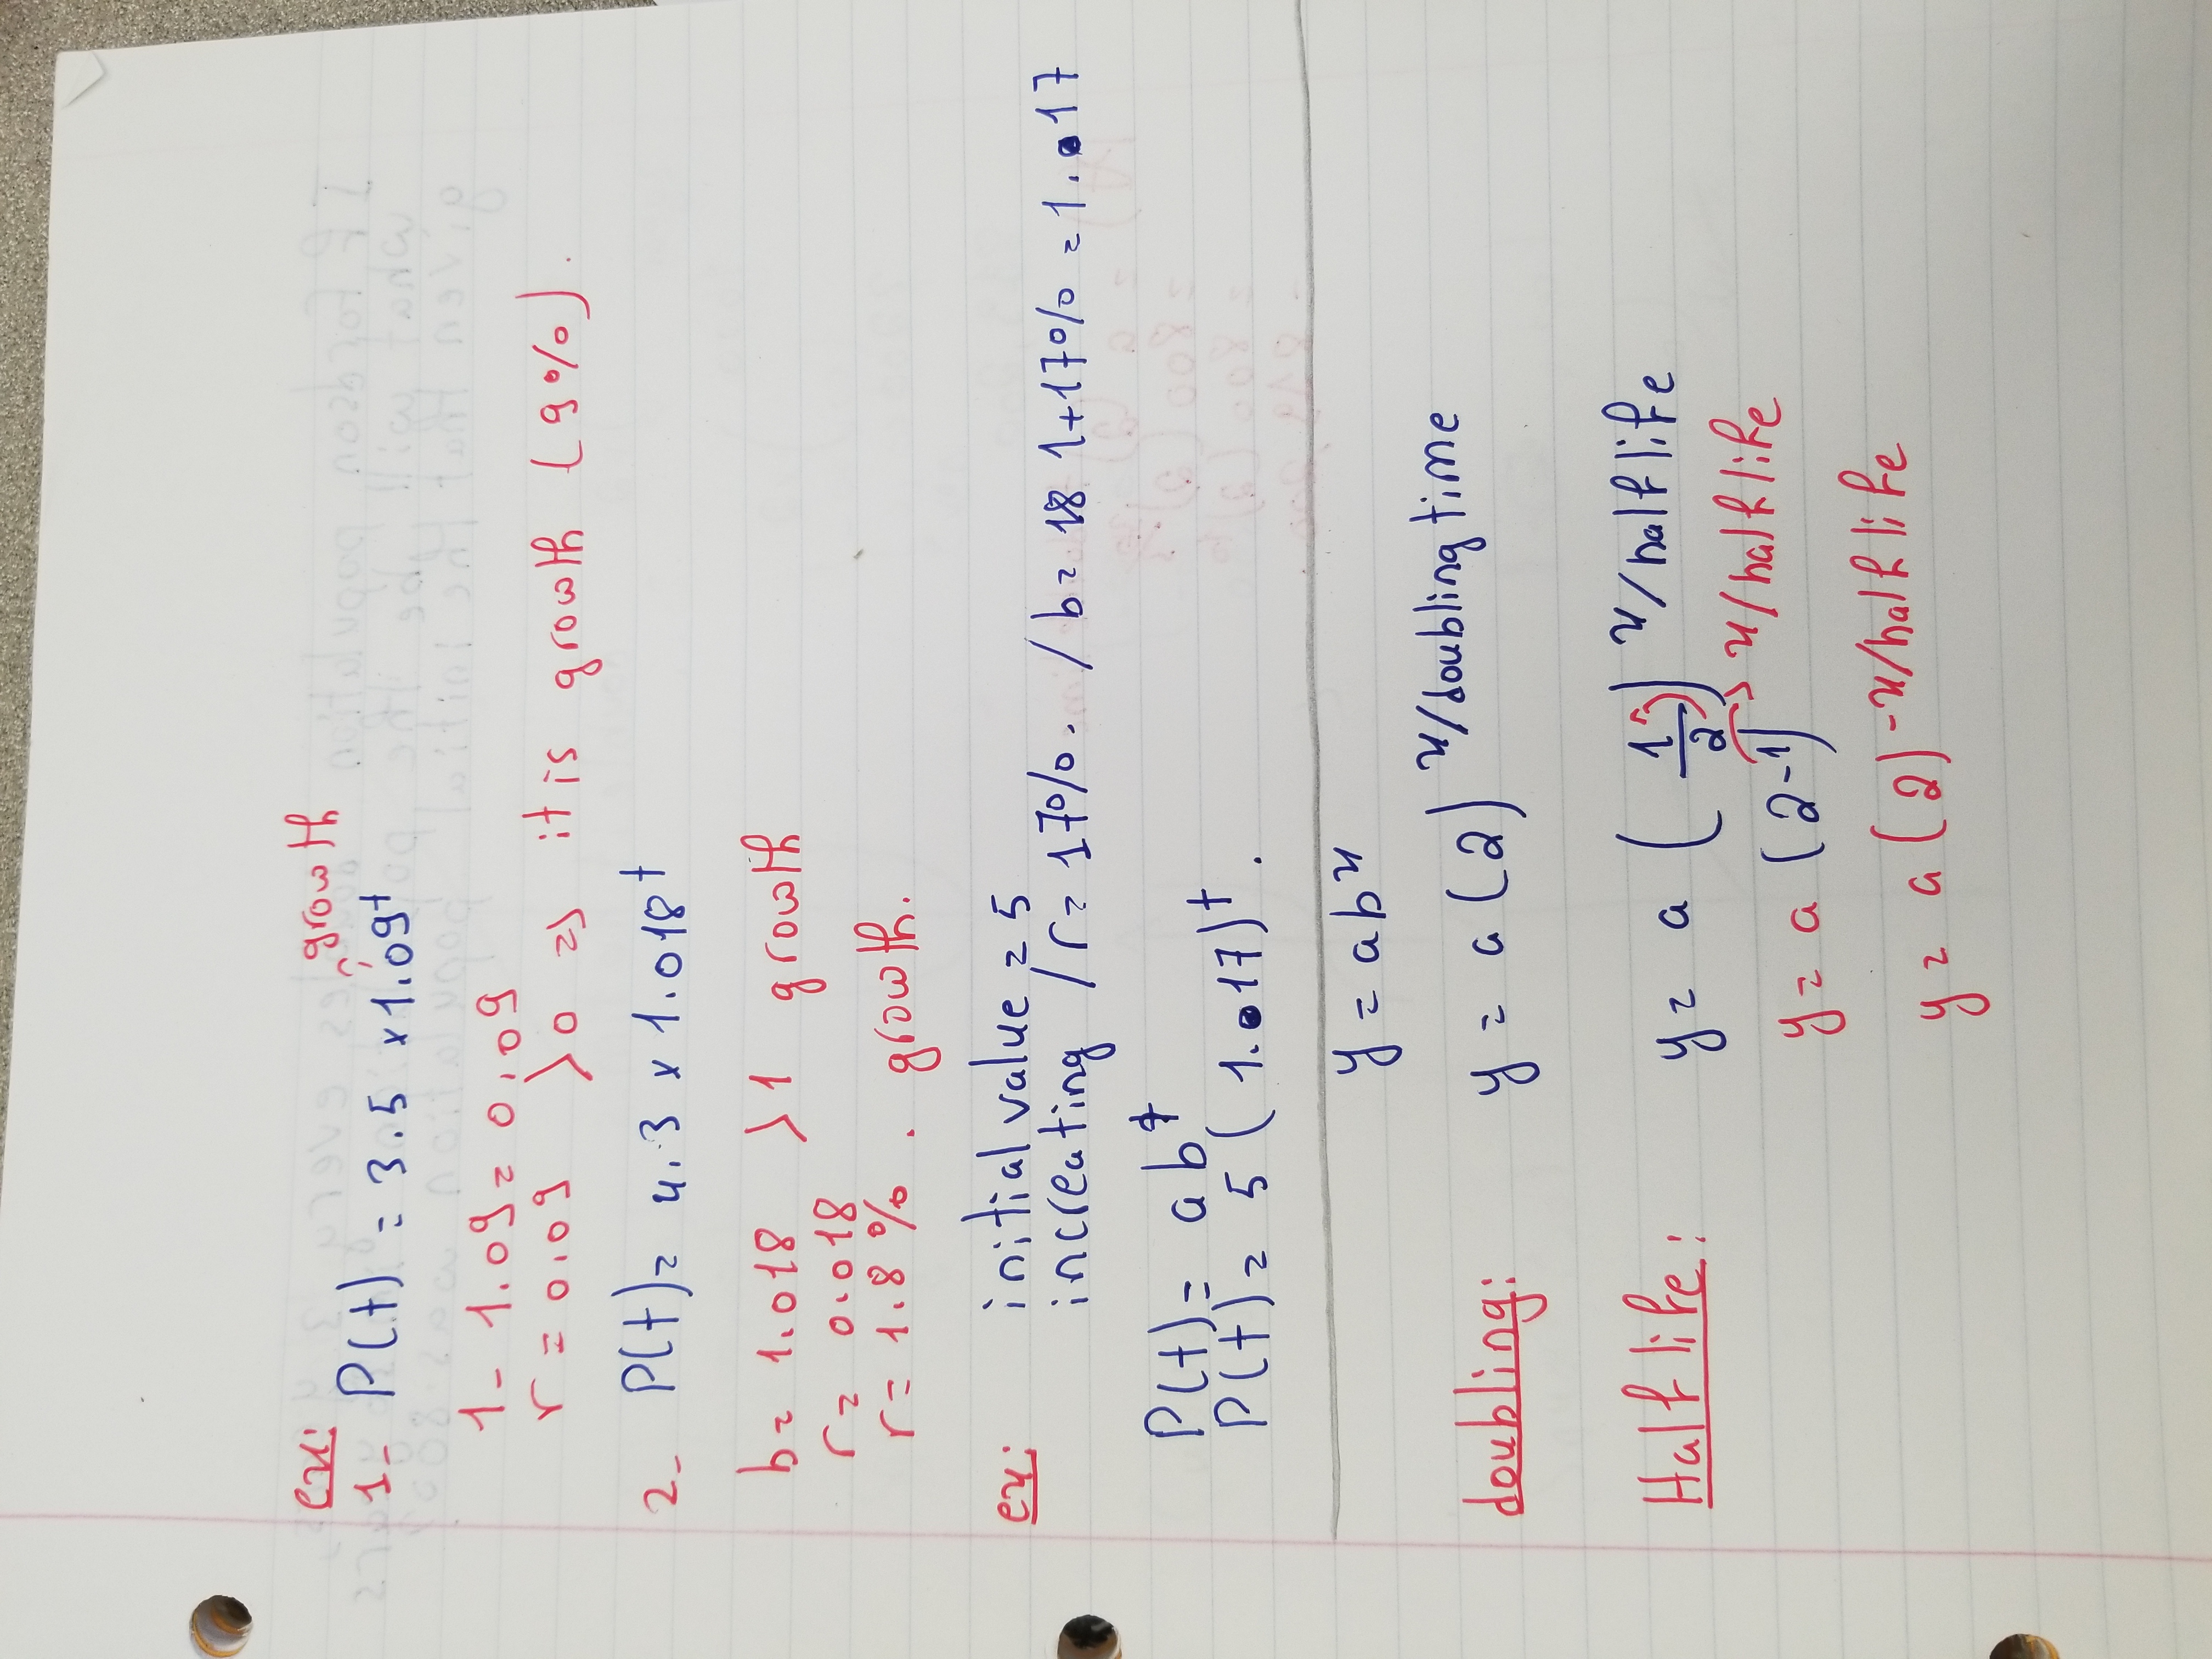 ex:
growth
1- P(t) = 3.5 x 1.09^t
1 - 1.09 = 0.09
r = 0.09 >0 => it is growth (9%).
2- P(t) = 4.3 x 1.018^t
b = 1.018 >1 growth
r = 0.018
r = 1.8%. growth.
ex: initial value = 5
increating / r = 17%. / b = 18 1+17% = 1.17
P(t) = ab^t
P(t) = 5 (1.17)^t.
y = ab^x
doubling: y = a (2)^x/doubling time
Half life: y = a (1/2)^x/half life
y = a (2^-1)^x/half life
y = a (2)^-x/half life